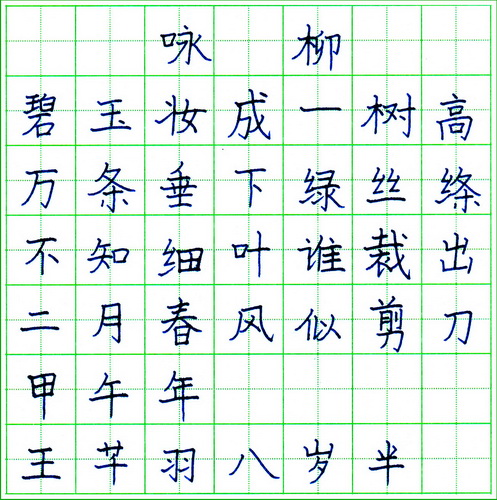 咏柳
碧玉妆成一树高
万条垂下绿丝绦
不知细叶谁裁出
二月春风似剪刀
甲午年
王芊羽八岁半